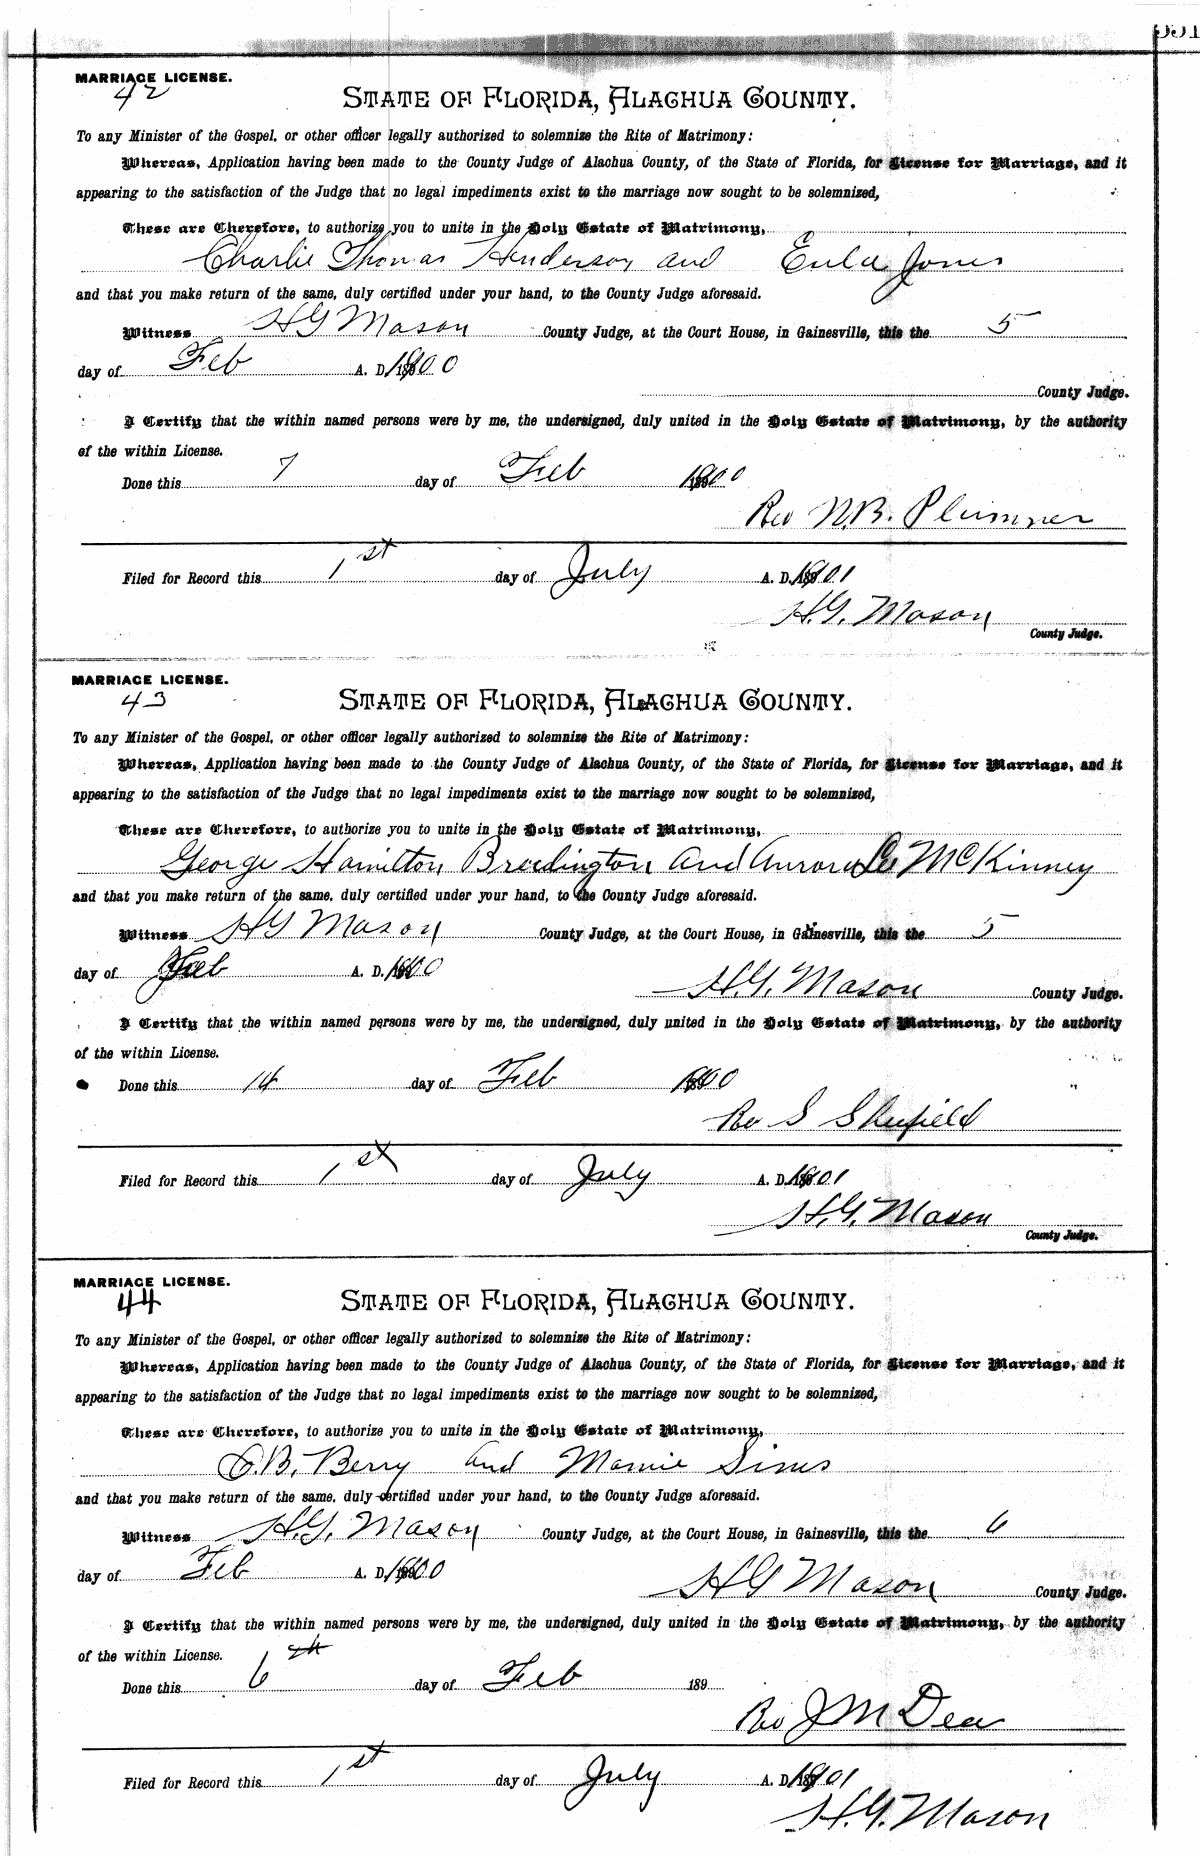 351
MARRIAGE LICENSE.
42
STATE OF FLORIDA, ALACHUA COUNTY.
To any Minister of the Gospel, or other officer legally authorized to solemnize the Rite of Matrimony:
Whereas, Application having been made to the County Judge of Alachua County, of the State of Florida, for License for Marriage, and it
appearing to the satisfaction of the Judge that no legal impediments exist to the marriage now sought to be solemnized,
These are Therefore, to authorize you to unite in the Holy Estate of Matrimony,
Charlie Thomas Henderson and Eula Jones
and that you make return of the same, duly certified under your hand, to the County Judge aforesaid.
Witness HG Mason County Judge, at the Court House, in Gainesville, this the 5
day of Feb A. D. 1900
County Judge.
I Certify that the within named persons were by me, the undersigned, duly united in the Holy Estate of Matrimony, by the authority
of the within License.
Done this 7 day of Feb 1900
Rev N.B. Plummer
Filed for Record this 1st day of July A. D. 1901
H.G. Mason
County Judge.
MARRIAGE LICENSE.
43
STATE OF FLORIDA, ALACHUA COUNTY.
To any Minister of the Gospel, or other officer legally authorized to solemnize the Rite of Matrimony:
Whereas, Application having been made to the County Judge of Alachua County, of the State of Florida, for License for Marriage, and it
appearing to the satisfaction of the Judge that no legal impediments exist to the marriage now sought to be solemnized,
These are Therefore, to authorize you to unite in the Holy Estate of Matrimony,
George Hamilton Breedington and Aurora Lee McKinney
and that you make return of the same, duly certified under your hand, to the County Judge aforesaid.
Witness HG Mason County Judge, at the Court House, in Gainesville, this the 5
day of Feb A. D. 1900
H.G. Mason County Judge.
I Certify that the within named persons were by me, the undersigned, duly united in the Holy Estate of Matrimony, by the authority
of the within License.
Done this 14 day of Feb 1900
Rev S Shufield
Filed for Record this 1st day of July A. D. 1901
H.G. Mason
County Judge.
MARRIAGE LICENSE.
44
STATE OF FLORIDA, ALACHUA COUNTY.
To any Minister of the Gospel, or other officer legally authorized to solemnize the Rite of Matrimony:
Whereas, Application having been made to the County Judge of Alachua County, of the State of Florida, for License for Marriage, and it
appearing to the satisfaction of the Judge that no legal impediments exist to the marriage now sought to be solemnized,
These are Therefore, to authorize you to unite in the Holy Estate of Matrimony,
C.B. Berry and Mamie Sims
and that you make return of the same, duly certified under your hand, to the County Judge aforesaid.
Witness H.G. Mason County Judge, at the Court House, in Gainesville, this the 6
day of Feb A. D. 1900
HG Mason County Judge.
I Certify that the within named persons were by me, the undersigned, duly united in the Holy Estate of Matrimony, by the authority
of the within License.
Done this 6th day of Feb 189
Rev J M Deas
Filed for Record this 1st day of July A. D. 1901
H.G. Mason